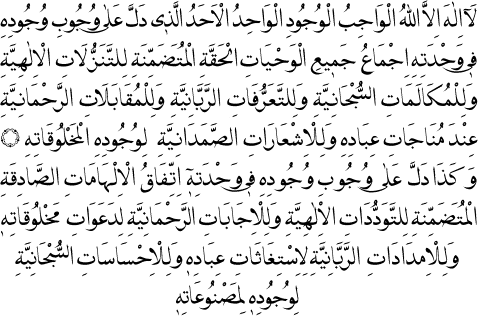 لَآ اِلٰهَ اِلَّا اللّٰهُ الْوَاجِبُ الْوُجُودِ الْوَاحِدُ الْاَحَدُ الَّذِى دَلَّ عَلٰى وُجُوبِ وُجُودِهِ
فِى وَحْدَتِهِ اِجْمَاعُ جَمِيعِ الْوَحْيَاتِ الْحَقَّةِ الْمُتَضَمِّنَةِ لِلتَّنَزُّلَاتِ الْاِلٰهِيَّةِ
وَلِلْمُكَالَمَاتِ السُّبْحَانِيَّةِ وَلِلتَّعَرُّفَاتِ الرَّبَّانِيَّةِ وَلِلْمُقَابَلَاتِ الرَّحْمَانِيَّةِ
عِنْدَ مُنَاجَاتِ عِبَادِهِ وَلِلْاِشْعَارَاتِ الصَّمَدَانِيَّةِ لِوُجُودِهِ لِمَخْلُوقَاتِهِ ۞
وَكَذَا دَلَّ عَلٰى وُجُوبِ وُجُودِهِ فِى وَحْدَتِهِ اِتِّفَاقُ الْاِلْهَامَاتِ الصَّادِقَةِ
الْمُتَضَمِّنَةِ لِلتَّوَدُّدَاتِ الْاِلٰهِيَّةِ وَلِلْاِجَابَاتِ الرَّحْمَانِيَّةِ لِدَعَوَاتِ مَخْلُوقَاتِهِ
وَلِلْاِمْدَادَاتِ الرَّبَّانِيَّةِ لِاِسْتِغَاثَاتِ عِبَادِهِ وَلِلْاِحْسَاسَاتِ السُّبْحَانِيَّةِ
لِوُجُودِهِ لِمَصْنُوعَاتِهِ